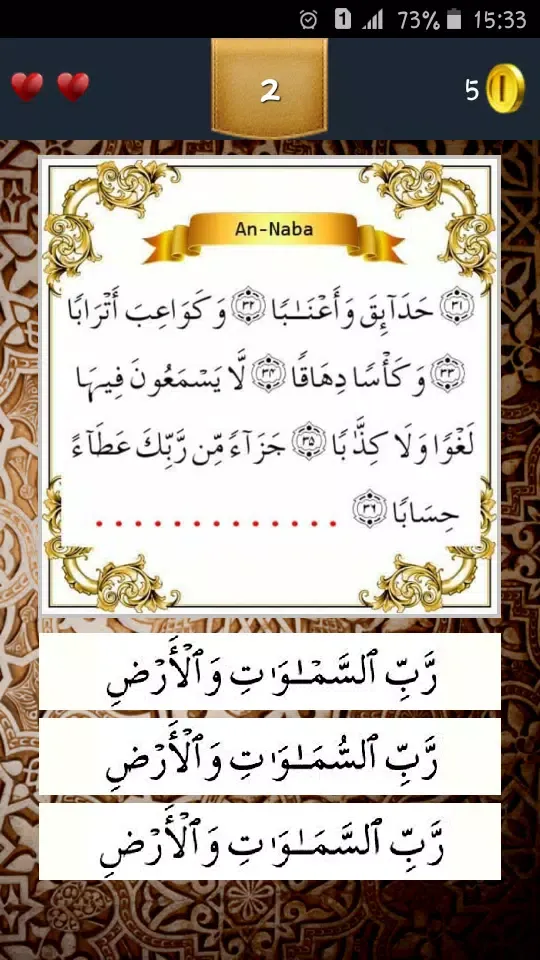 1 73% 15:33
2 5
An-Naba
٣١ حَدَآئِقَ وَأَعْنَـٰبًا ٣٢ وَكَوَاعِبَ أَتْرَابًا
٣٣ وَكَأْسًا دِهَاقًا ٣٤ لَّا يَسْمَعُونَ فِيهَا
لَغْوًا وَلَا كِذَّٰبًا ٣٥ جَزَآءً مِّن رَّبِّكَ عَطَآءً
حِسَابًا ٣٦ .............
رَّبِّ ٱلسَّمْـٰوَٰتِ وَٱلْأَرْضِ
رَّبِّ ٱلسُّمَـٰوَٰتِ وَٱلْأَرْضِ
رَّبِّ ٱلسَّمَـٰوَٰتِ وَٱلْأَرْضِ